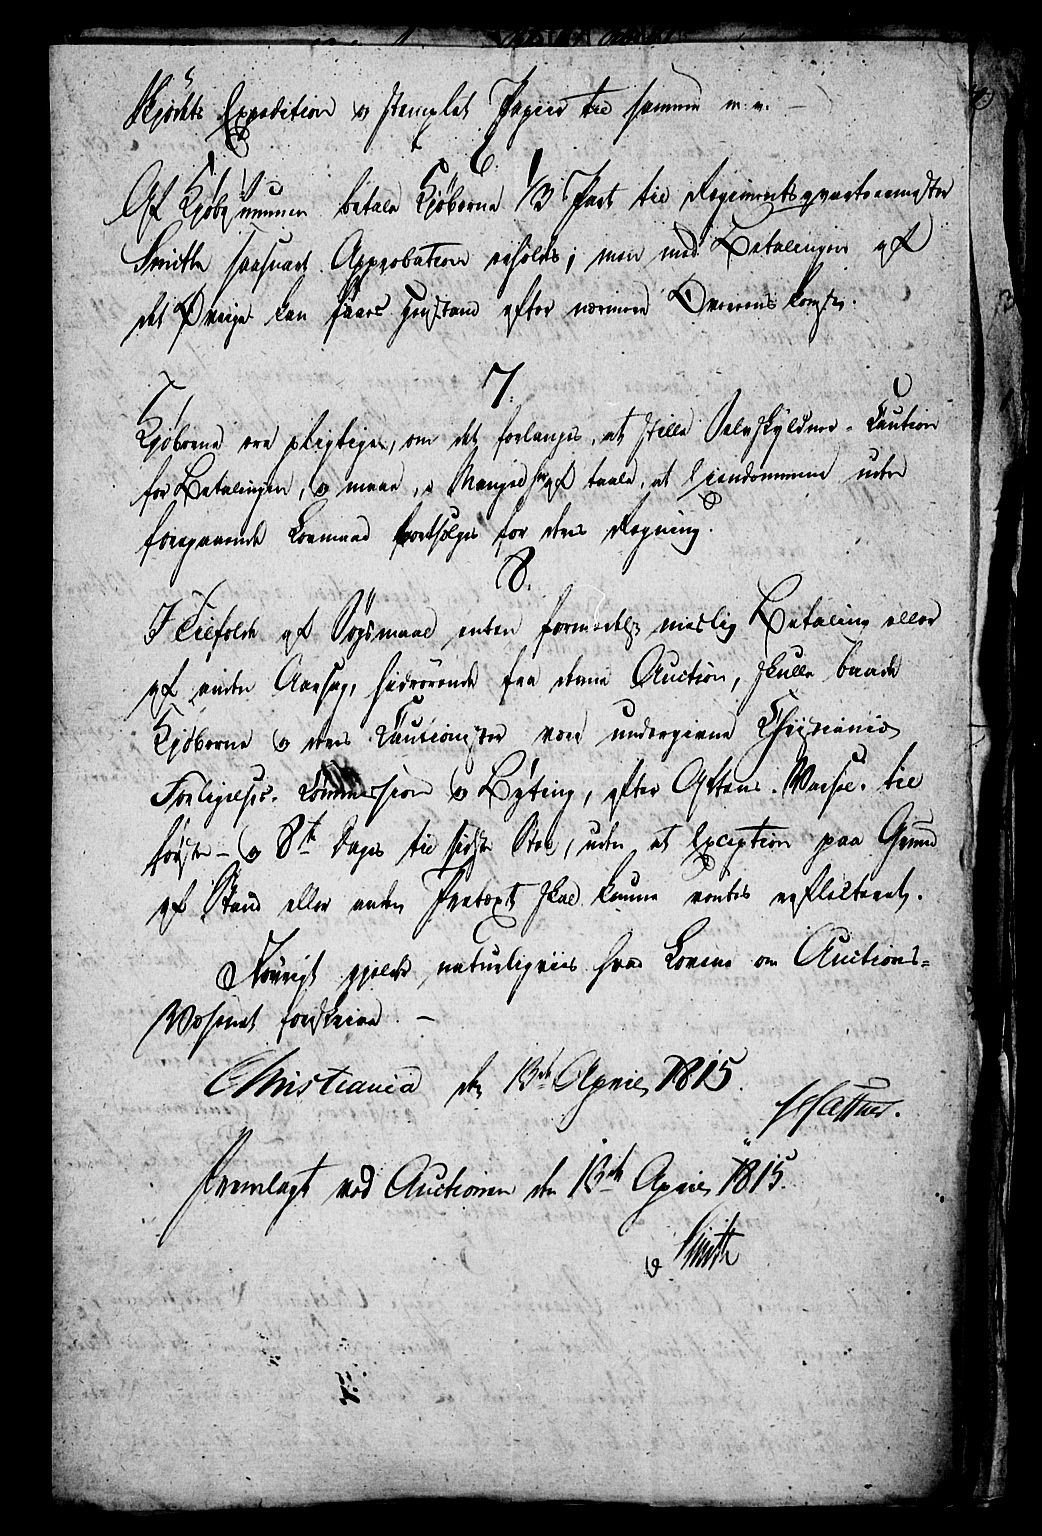 Skjødets Expedition og stemplet Papiir til samme m. v. –
6.
Af Kjøbesummen betale Kjøberne 1/3 Part til Regimentsqvarteermester
Smith saasnart Approbation erholdes; men med Betalingen af
det Øvrige kan faaes Henstand efter nærmere Overeenskomst.
7.
Kjøberne ere pligtige, om det forlanges, at stille Selvskyldner-Caution
for Betalingen, og maae, i Mangel heraf taale, at Eiendommene uden
foregaaende Lovmaal bortsælges for deres Regning.
8.
I Tilfælde af Søgsmaal enten formedelst mislig Betaling eller
af anden Aarsag, hidrørende fra denne Auction, skulle baade
Kjøberne og deres Cautionister være undergivne Christiania
Forligelses-Commission og Byting, efter Aftens-Varsel til
første – og 8te Dages til sidste Sted, uden at Exception paa Grund
af Stand eller anden Prætext skal kunne ventes reflecteret.
Iøvrigt gjelder naturligviis hvad Lovene om Auctions-
Væsenet foreskrive. –
Christiania den 13de April 1815.
Fremlagt ved Auctionen den 13de April 1815.
Smith